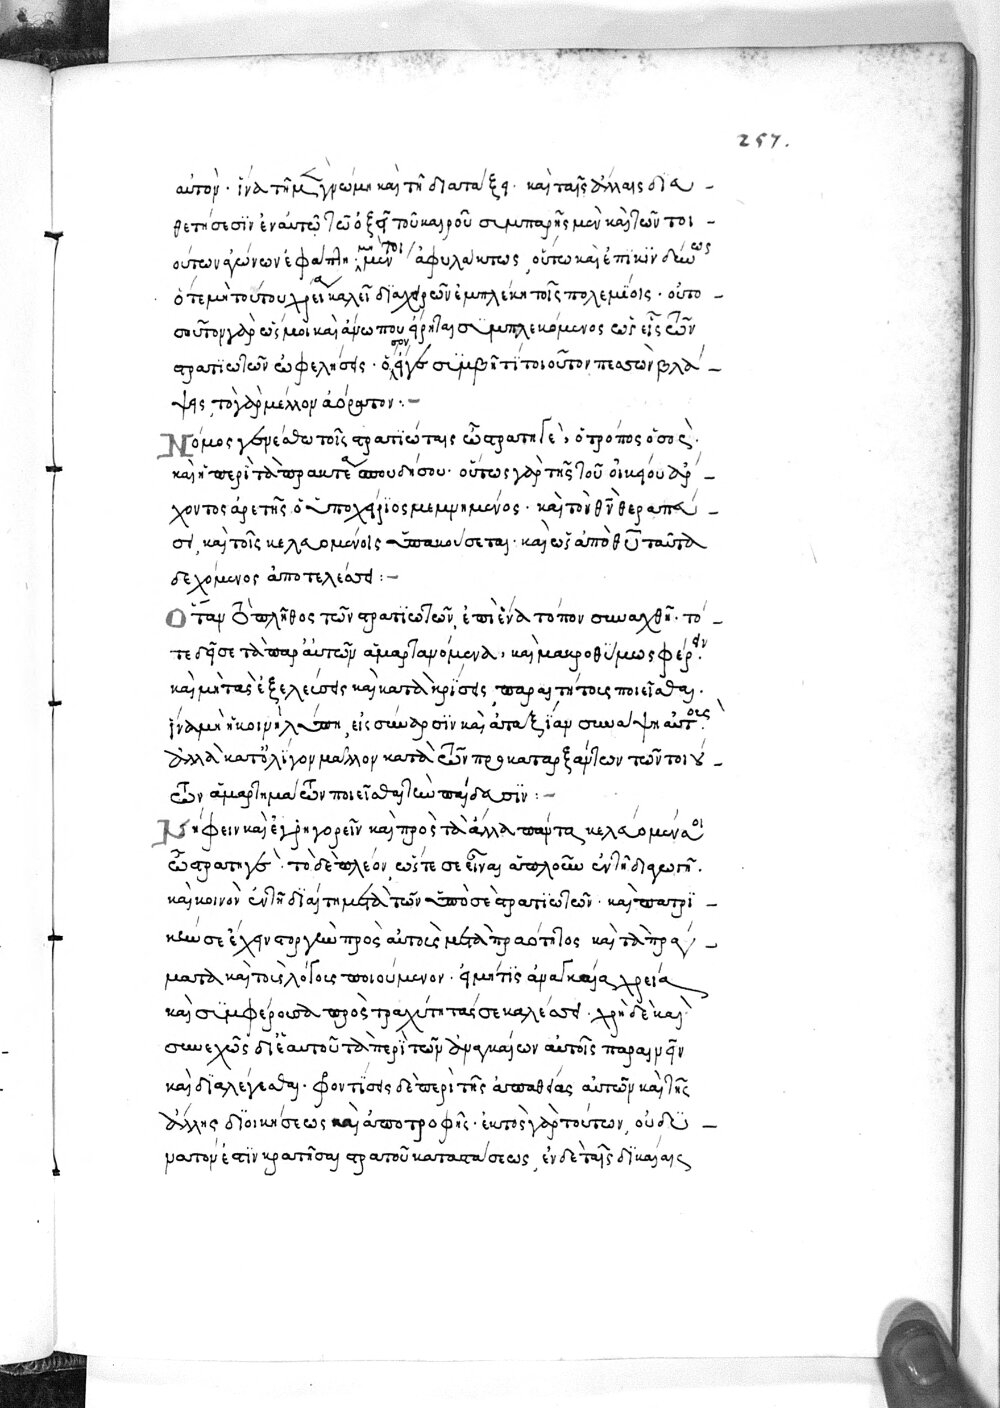 257.
αὐτὸν · ἵνα τῇ μ γνώμῃ καὶ τῇ διατάξει · καὶ ταῖς ἄλλαις δια –
θετήσεσιν ἐν αὐτῷ τῷ ὀξεῖ τοῦ καιροῦ συμπαρῇς μὲν καὶ τῶν τοι –
ούτων ἀγώνων ἐφάπτῃ · μὴ μέντοι ἀφυλάκτως, οὕτω καὶ ἐπικινδύνως
ὅτε μὴ τούτου χρεία καλεῖ διὰ χειρῶν ἐμπλέκῃ τοῖς πολεμίοις · οὐ το –
σοῦτον γὰρ ὥς μοι καὶ ἄνω που εἴρηται συμπλεκόμενος ὡς εἷς τῶν
στρατιωτῶν ὠφελήσεις · ὅσον εἴγε συμβῇ τι τοιοῦτον πεσὼν βλά –
ψεις, τὸ γὰρ μέλλον ἀόρατον : –
Νόμος γενέσθω τοῖς στρατιώταις ὦ στρατηγὲ, ὁ τρόπος ὁ σὸς ·
καὶ ἡ περὶ τὰ πρακτέα σπουδή σου · οὕτως γὰρ τῆς τοῦ οἰκείου ἄρ –
χοντος ἀρετῆς ὁ ὑποχείριος μεμνημένος · καὶ τὸν θν θεραπεύ –
σει, καὶ τοῖς κελευομένοις ὑπακούσεται · καὶ ὡς ἀπὸ θυ ταῦτα
δεχόμενος ἀποτελέσει : –
Ὅταν τὸ πλῆθος τῶν στρατιωτῶν, ἐπὶ ἕνα τόπον συναχθῇ · τό –
τε δεῖ σε τὰ παρ' αὐτῶν ἁμαρτανόμενα, καὶ μακροθύμως φέρειν ·
καὶ μὴ τὰς ἐξελεύσεις καὶ κατακρίσεις, παραιτήτους ποιεῖσθαι ·
ἵνα μὴ ἡ κοινὴ λύπη, εἰς σύναρσιν καὶ ἀταξίαν συνάψῃ αὐτούς ·
ἀλλὰ κατ' ὀλίγον μᾶλλον κατὰ τῶν προκαταρξάντων τῶν τοιού –
των ἁμαρτημάτων ποιεῖσθαι τὴν παίδευσιν : –
Νήφειν καὶ ἐγρηγορεῖν καὶ πρὸς τὰ ἄλλα πάντα κελεύομέν σοι
ὦ στρατηγέ · τὸ δὲ πλέον, ὥστε σε εἶναι ἁπλοῦν ἐν τῇ διαγωγῇ ·
καὶ κοινὸν ἐν τῇ διαίτῃ μετὰ τῶν ὑπὸ σὲ στρατιωτῶν · καὶ πατρι –
κήν σε ἔχειν στοργὴν πρὸς αὐτοὺς μετὰ πραότητος καὶ τὰ πρά –
γματα καὶ τοὺς λόγους ποιούμενον · εἰ μή τις ἀναγκαία χρεία
καὶ συμφέρουσα πρὸς τραχύτητάς σε καλέσει · χρὴ δὲ καὶ
συνεχῶς δι' ἑαυτοῦ τὰ περὶ τῶν ἀναγκαίων αὐτοῖς παραινεῖν
καὶ διαλέγεσθαι · φροντίσεις δὲ περὶ τῆς ἀπαθείας αὐτῶν καὶ τῆς
ἄλλης διοικήσεως καὶ ἀποτροφῆς · ἐκτὸς γὰρ τούτων, οὐ δυ –
νατόν ἐστιν κρατῆσαι στρατοῦ καταστάσεως, ἐν δὲ ταῖς δικαίαις